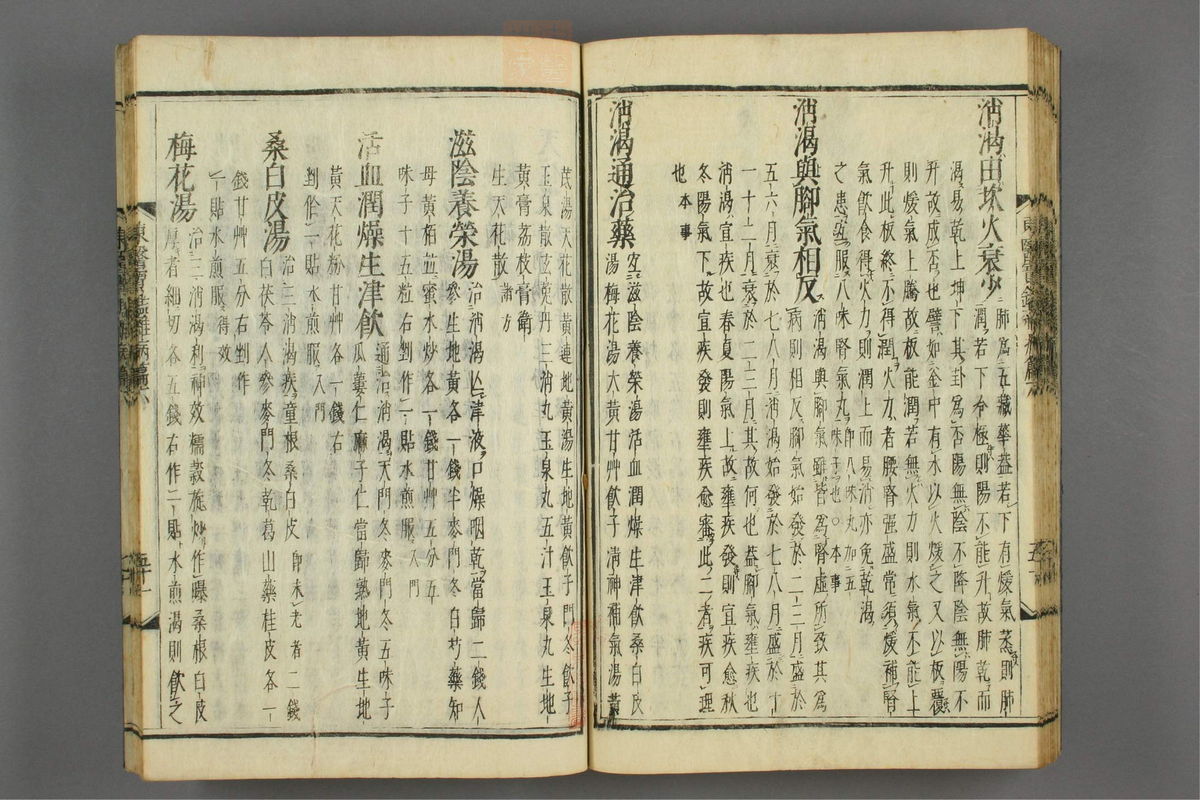 消渴由坎火衰少 肺爲五藏華蓋若下有煖氣蒸則肺
潤若下冷極則陽不能升故肺乾而
渴易乾上坤下其卦爲否陽無陰不降陰無陽不
升故成否也譬如釜中有水以火煖之又以板覆
則煖氣上騰故板能潤若無火力則水氣不能上
升此板終不得潤火力者腰腎强盛常須煖補腎
氣飮食得火力則潤上而易消亦免乾渴
之患宜服八味腎氣丸卽八味丸加五味子也○本事
消渴與腳氣相反 消渴與腳氣雖皆爲腎虛所致其爲
病則相反腳氣始發於二三月盛於
五六月衰於七八月消渴始發於七八月盛於十
一十二月衰於二三月其故何也盖腳氣壅疾也
消渴宜疾也春夏陽氣上故壅疾發則宜疾愈秋
冬陽氣下故宜疾發則壅疾愈審此二者疾可理
也本事
消渴通治藥 宜滋陰養榮湯活血潤燥生津飮桑白皮
湯梅花湯大黃甘艸飮子淸神補氣湯黃
芪湯天花散黃連地黃湯生地黃飮子門冬飮子
玉泉散玄菟丹三消丸玉泉丸五汁玉泉丸生地
黃膏荔枝膏衛
生天花散諸方
滋陰養榮湯 治消渴亾津液口燥咽乾當歸二錢人
參生地黃各一錢半麥門冬白芍藥知
母黃栢並蜜水炒各一錢甘艸五分五
味子十五粒右剉作一貼水煎服入門
活血潤燥生津飮 通治消渴天門冬麥門冬五味子
瓜蔞仁麻子仁當歸熟地黃生地
黃天花粉甘艸各一錢右
剉作一貼水煎服入門
桑白皮湯 治三消渴疾童根桑白皮卽未老者二錢
白茯苓人參麥門冬乾葛山藥桂皮各一
錢甘艸五分右剉作
一貼水煎服得效
梅花湯 治三消渴利神效糯穀旋炒作曝桑根白皮
厚者細切各五錢右作二貼水煎渴則飮之